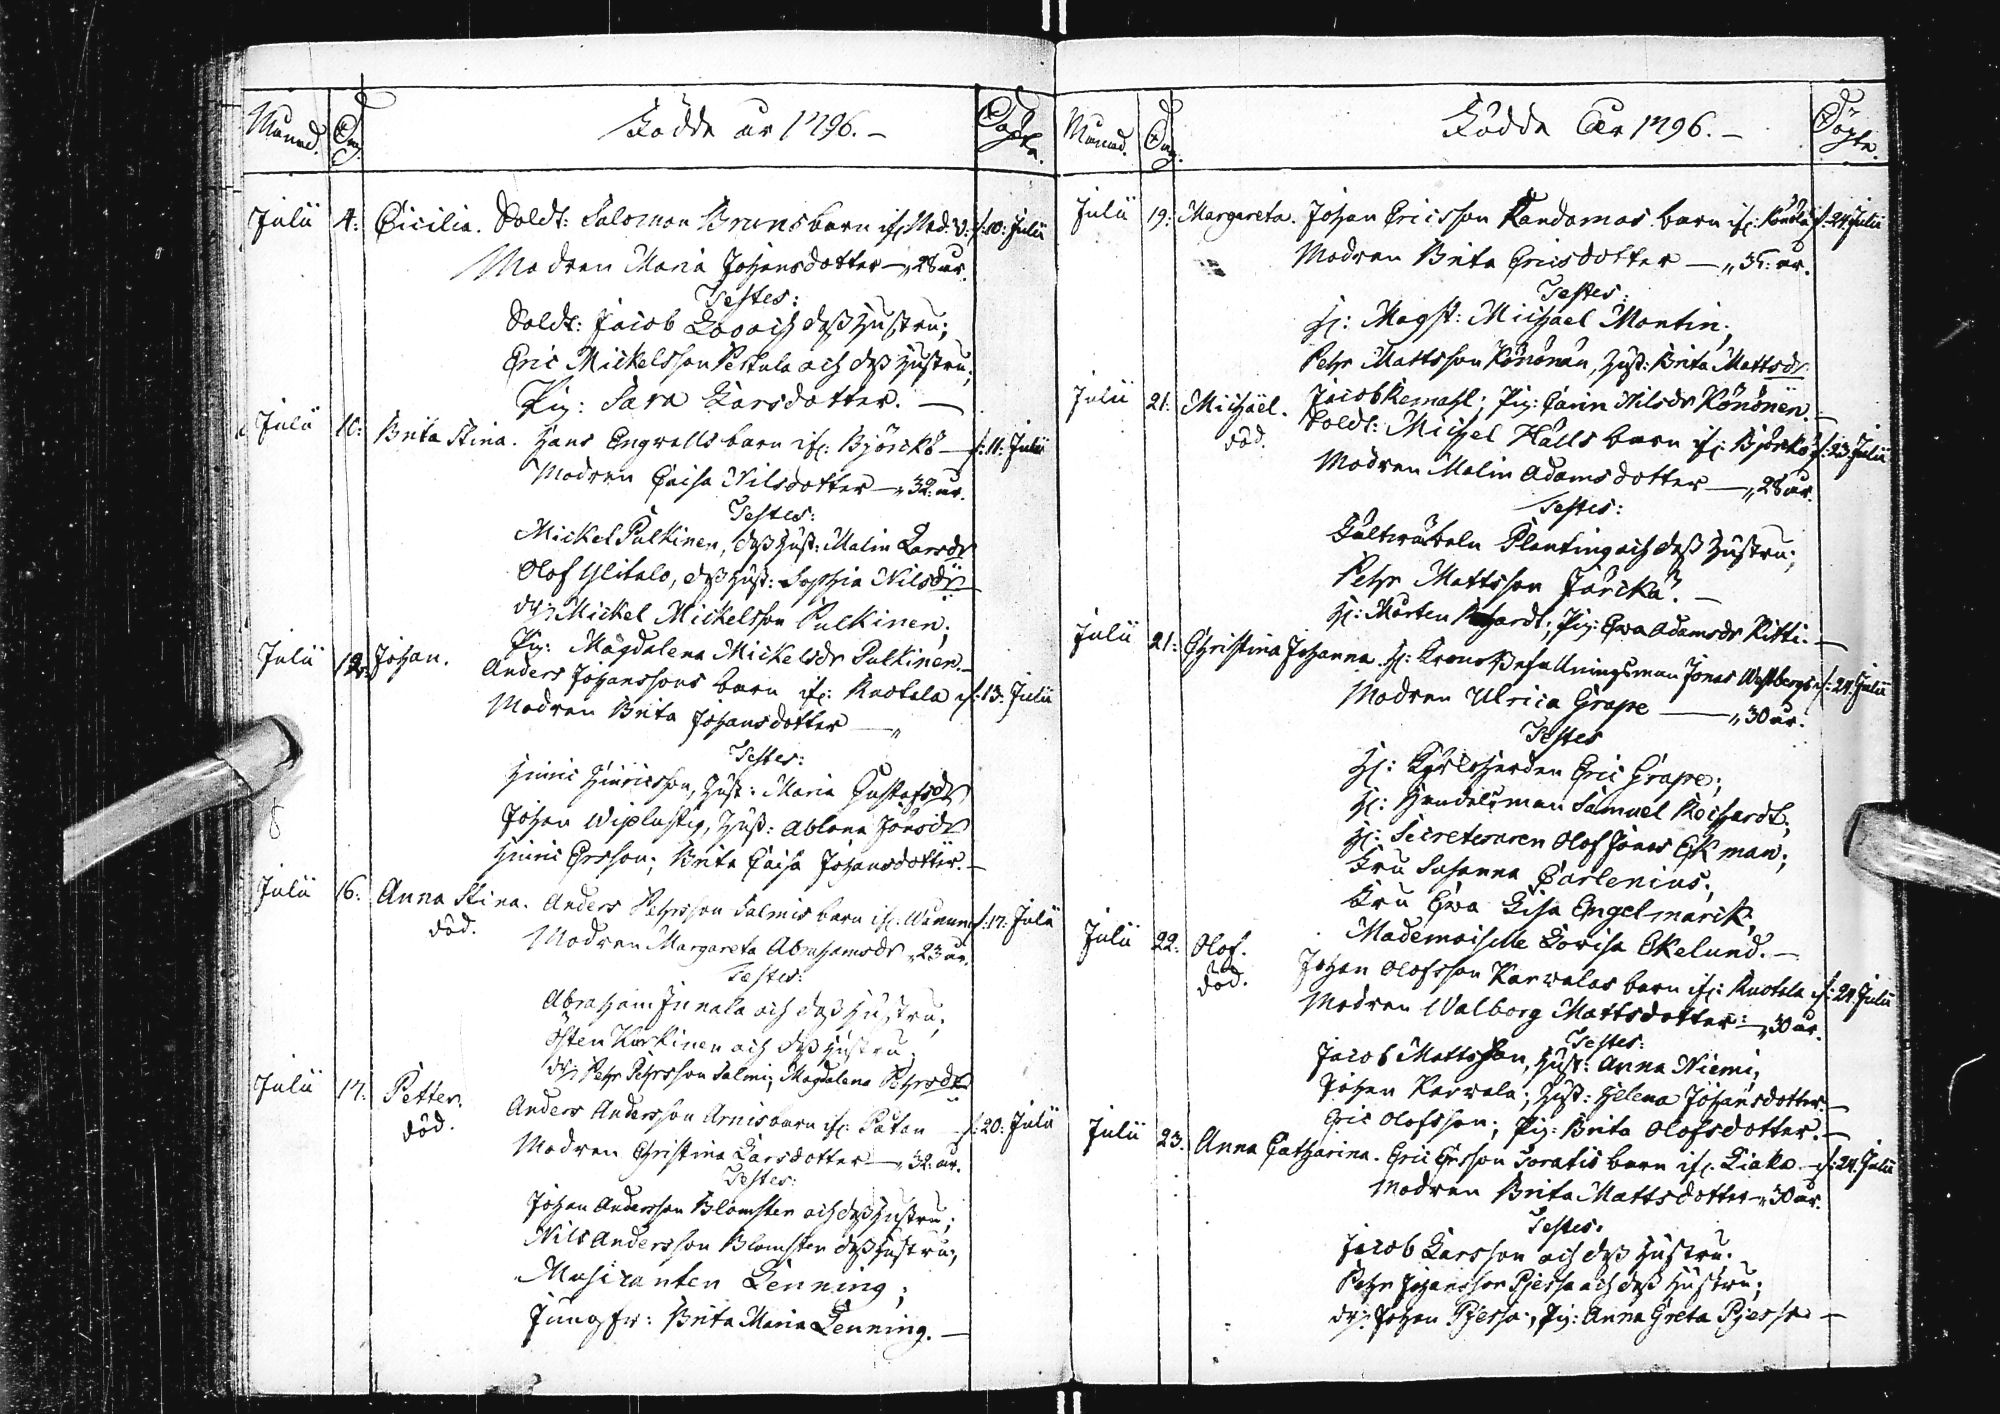 Månad. Dag. Födde år 1796. — Döpte.
Julii 4: Cicilia. Soldt: Salomon Bruns barn if: Ned: V: d: 10: Julii
Modren Maria Johansdotter — „ 28 år.
Testes:
Soldt: Jacob Loo och dess hustru;
Eric Mickelsson Pertula och dess hustru;
Pig: Sara Larsdotter. —
Julii 10: Brita Stina. Hans Engwalls barn if: Björckö — d: 11: Julii
Modren Caisa Nilsdotter — „ 32 år.
Testes:
Mickel Pulkinen, dess hust: Malin Larsdr
Olof Ylitalo, dess hust: Sophia Nilsdr
drg Mickel Mickelsson Pulkinen;
Pig: Magdalena Mickelsdr Pulkinen. —
Julii 12: Johan. Anders Johanssons barn if: Ruotala d: 13: Julii
Modren Brita Johansdotter — „
Testes:
Hinric Hinricsson, Hust: Maria Gustafsdr
Johan Wiplustig, Hust: Ablona Jönsdr
Hinric Ersson; Brita Caisa Johansdotter. —
Julii 16: Anna Stina. Anders Pehrsson Salmis barn if: d: 17: Julii
död. Modren Margareta Abrahamsdr „ 23 år.
Testes:
Abraham Junala och dess hustru;
Östen Kurkinen och dess hustru;
drg Pehr Pehrsson Salmi; Magdalena Pehrsdr
Julii 17: Petter. Anders Andersson Arnis barn if: Päkan — d: 20: Julii
död. Modren Christina Larsdotter — „ 32 år.
Testes:
Johan Andersson Blomster och dess hustru;
Nils Andersson Blomster dess hustru;
Musicanten Lenning;
Jungfr: Brita Maria Lenning. —
Månad. Dag. Födde År 1796. — Döpte.
Julii 19: Margareta. Johan Ericsson Kandamas barn if: d: 24: Julii
Modren Brita Ericsdotter — „ 35: år.
Testes:
H: Magst: Michael Montin;
Pehr Mattsson Könönen, hust: Brita Mattsdr
Jacob Kemahl; Pig: Carin Nilsdr Könönen. —
Julii 21: Michael. Soldt: Michel Hälls barn if: Björckö d: 23: Julii
död. Modren Malin Adamsdotter — „ 28 år.
Testes:
Fältwäbeln Planting och dess hustru;
Pehr Mattsson Järckä. —
H: Mårten; Pig: Ewa Adamsdr Kitti. —
Julii 21: Christina Johanna. H: Krono Befallningsman Jonas Westbergs d: 24: Julii
Modren Ulrica Grape — „ 30 år.
Testes
H: Kyrkoherden Eric Grape;
H: Handelsman Samuel Reichardt;
H: Secreteraren Olof Jonas Ekman;
Fru Susanna Carlenius;
Fru Ewa Lisa Engelmarck;
Mademoiselle Lovisa Ekelund. —
Julii 22: Olof. Johan Olofsson Karwalas barn if: Ruotala d: 24: Julii
död. Modren Walborg Mattsdotter: — „ 30 år.
Testes:
Jacob Mattsson, hust: Anna Niemi;
Johan Karwala; hust: Helena Johansdotter. —
Eric Olofsson; Pig: Brita Olofsdotter. —
Julii 23. Anna Catharina. Eric Ersson Soratis barn if: Liako — d: 24: Julii
Modren Brita Mattsdotter „ 30 år.
Testes:
Jacob Larsson och dess hustru.
Pehr Johansson Pjessa och dess hustru;
drg: Johan Pjessa; Pig: Anna Greta Pjessa —